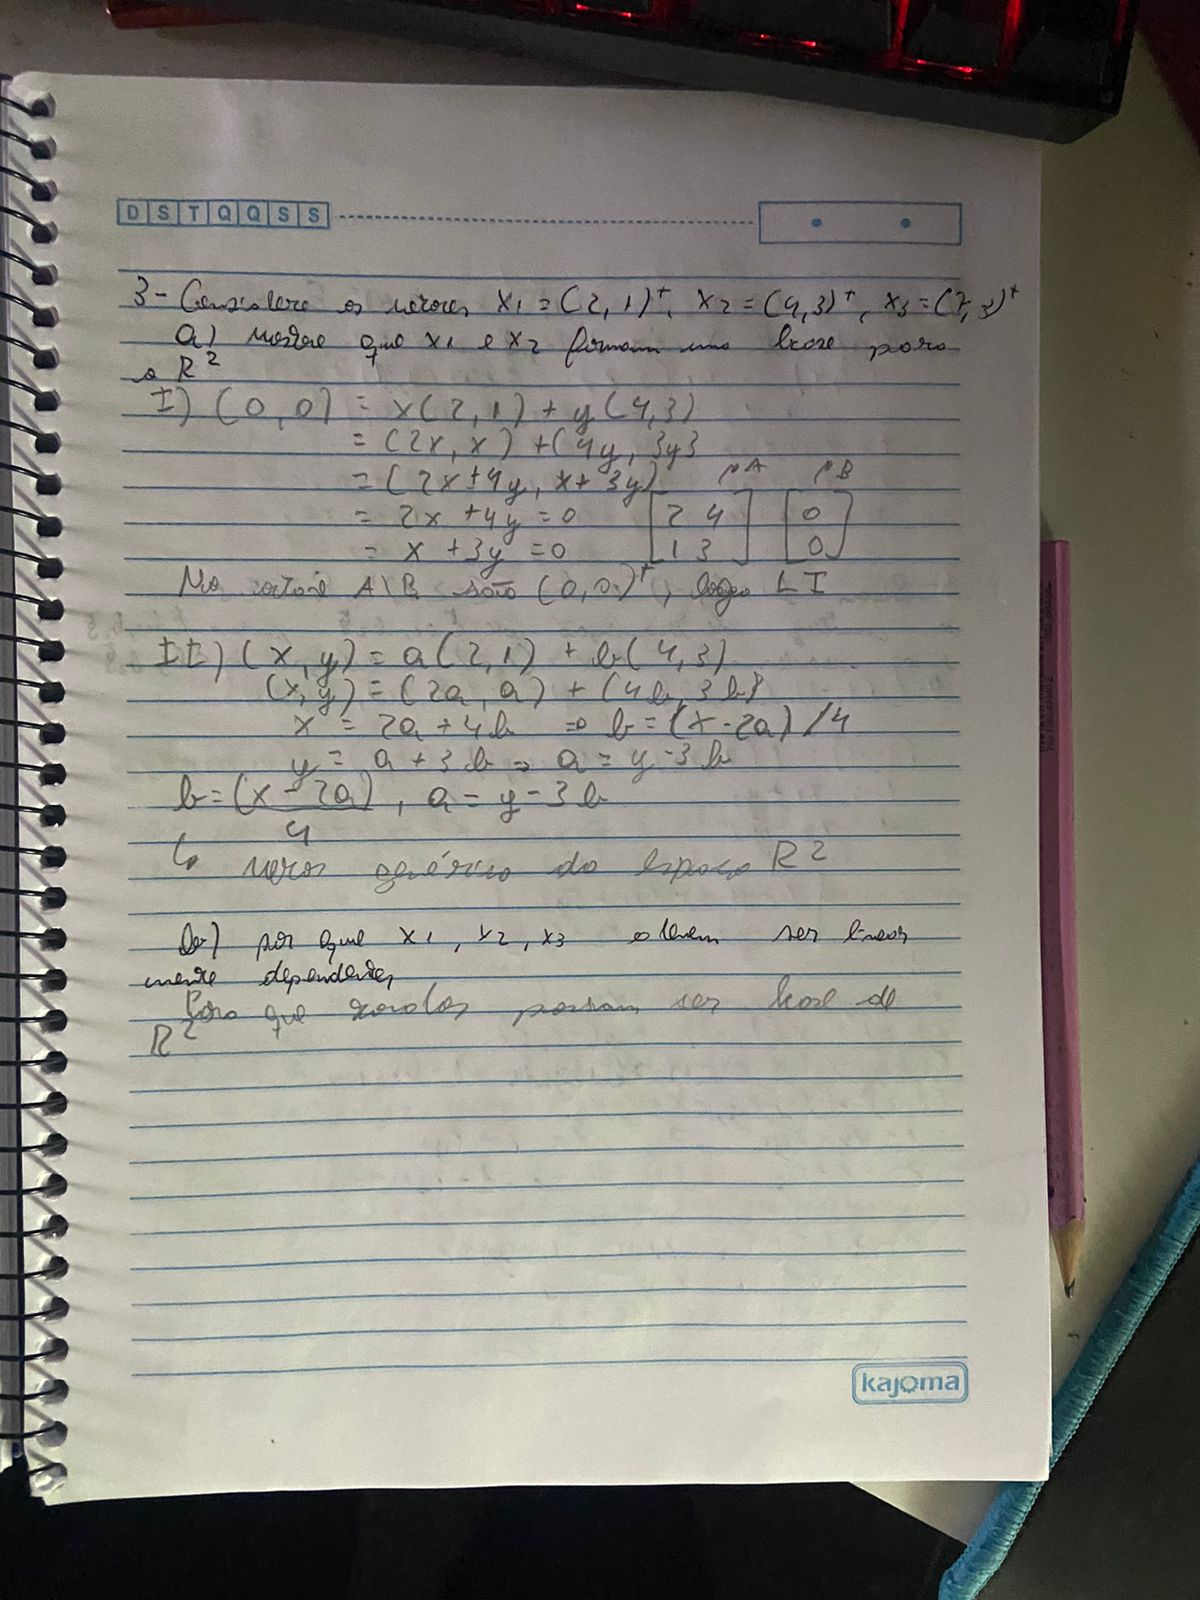 D S T Q Q S S
3- Considere os vetores x1 = (2, 1)^t, x2 = (4,3)^t, x3 = (7, 3)^t
a) mostre que x1 e x2 formam uma base para
o R²
I) (0, 0) = x(2, 1) + y(4,3)
= (2x, x) + (4y, 3y)
= (2x+4y, x+3y)
= 2x + 4y = 0 [2 4 [0
= x + 3y = 0 1 3] 0]
A B
No A\B são (0, 0)^t, logo LI
II) (x, y) = a(2,1) + b(4,3)
(x,y) = (2a, a) + (4b, 3b)
x = 2a + 4b => b = (x-2a)/4
y = a + 3b => a = y-3b
b = (x - 2a)/4, a = y - 3b
↳ genérico do espaço R²
b) por que x1, x2, x3 devem ser linear
mente dependentes
Para que possam ser base de
R²
kajoma